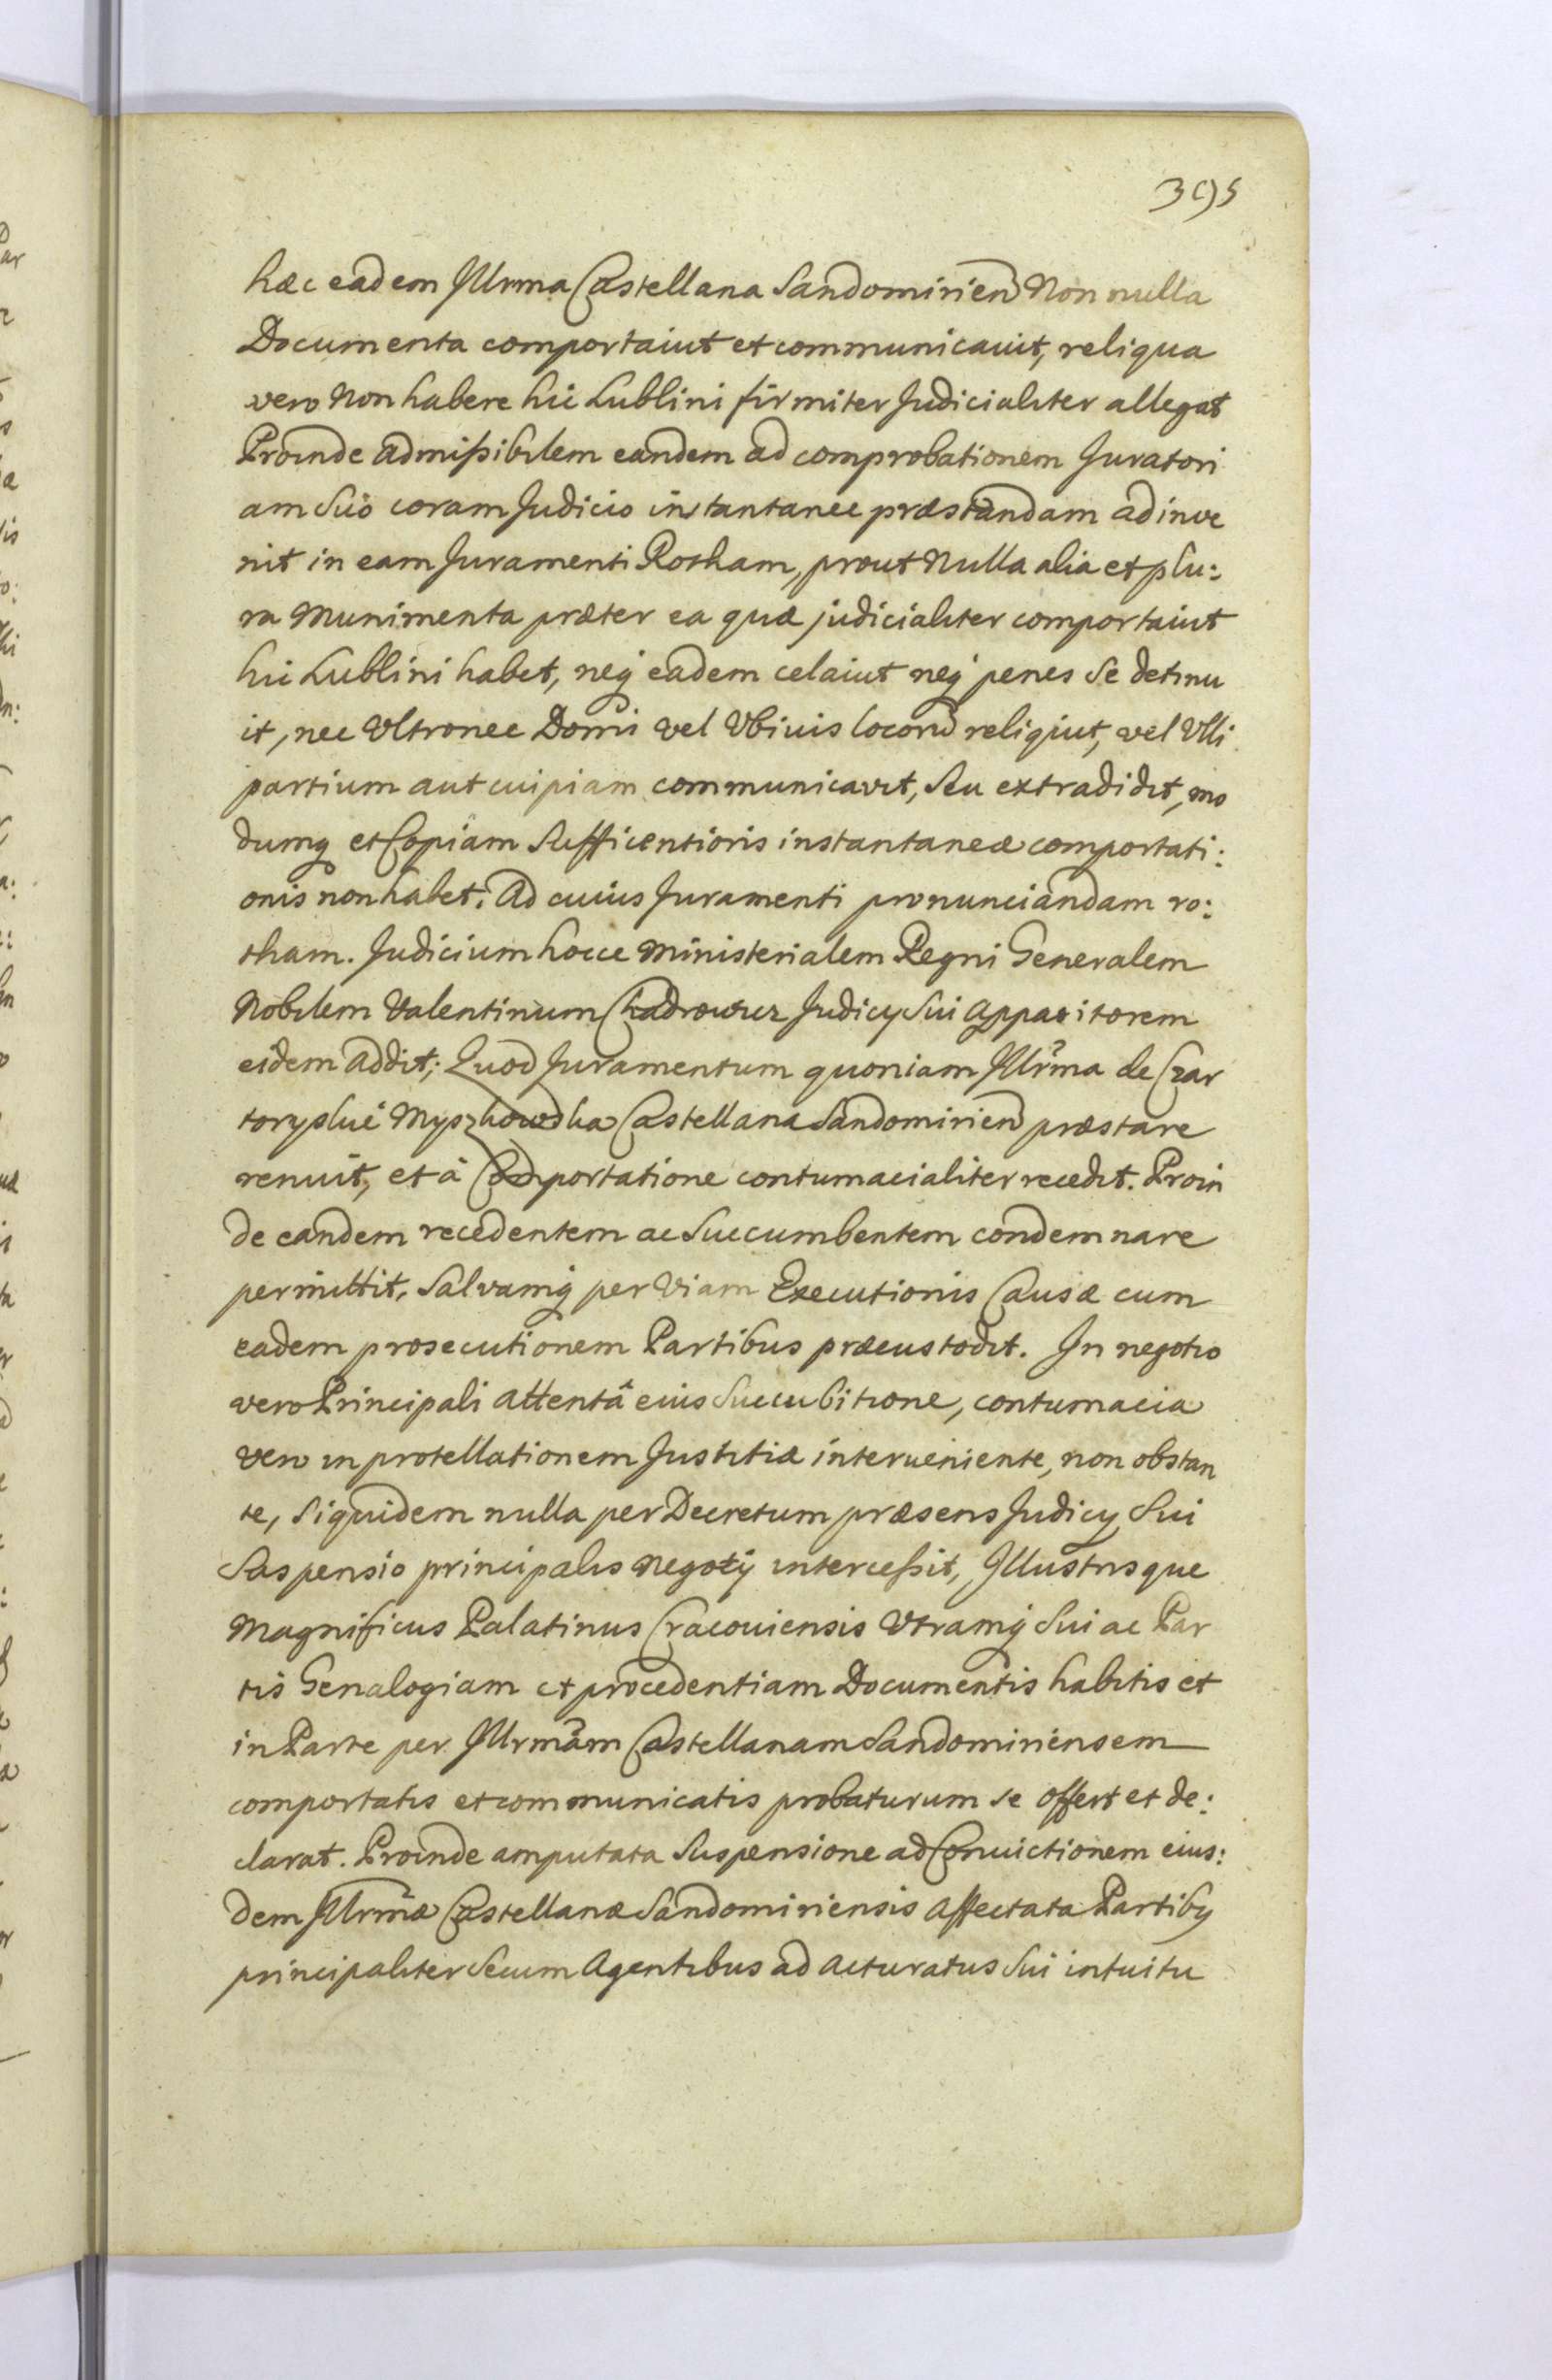 395
hæc eadem Illrma Castellana Sandomirien Non nulla
Documenta comportaiut et communicauit, reliqua
vero Non habere hic Lublini firmiter Judicialiter allegat
Proinde admissibilem eandem ad comprobationem Juratori
am Suo coram Judicio instantanee præstandam adinve
nit in eam Juramenti Rotham, prout Nulla alia et plu:
ra Munimenta præter ea quæ judicialiter comportaiut
hic Lublini habet, neq eadem celaiut neq penes se detinu
it, nec Vltronee Domi vel Vbiuis locorũ religiut, vel Vlli
partium aut cuipiam communicavit, seu extradidit, mo
dumq et Copiam Sufficentioris instantaneæ comportati:
onis non habet. Ad cuius Juramenti pronunciandam ro:
tham. Judicium hocce Ministerialem Regni Generalem
Nobilem Valentinum Judicÿ Sui Apparitorem
eidem addit; Quod Juramentum quoniam Illrm̃a de Czar
toryskie Myszkowska Castellana Sandomirien præstare
renuit, et â Comportatione contumacialiter recedit. Proin
de eandem recedentem ac Succumbentem condemnare
permittit, Salvamq per Viam Executionis Causæ cum
eadem prosecutionem Partibus præcustodit. In negotio
vero Principali attentâ eius Succubitione, contumacia
vero in protellationem Justitiæ interueniente, non obstan
te, siquidem nulla per Decretum præsens Judicÿ Sui
Saspensio principalis Negotÿ intercessit, Illustrisque
Magnificus Palatinus Cracouiensis Vtramq Sui ac Par
tis Genalogiam et procedentiam Documentis habitis et
in Parte per Illrmãm Castellanam Sandomiriensem
comportatis et communicatis probaturum se offert et de:
clarat. Proinde amputata Suspensione ad Conuictionem eius:
dem Illrmæ Castellanæ Sandomiriensis affectata Partibq
principaliter Secum Agentibus ad acturatus Sui intuitu